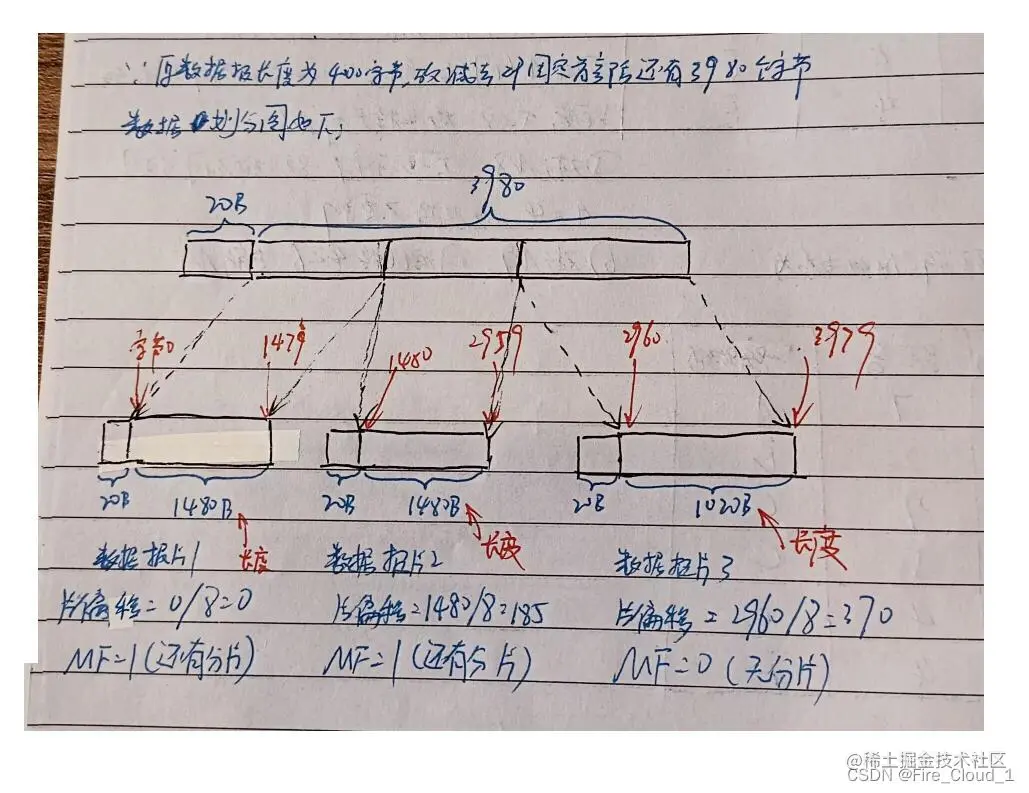 ∵原数据报长度为400字节,故减去个固定首部后还有3980个字节
数据划分图如下:
20B 3980
字节0 1479 1480 2959 2960 3979
20B 1480B 20B 1480B 20B 1020B
长度 长度 长度
数据报片1 数据报片2 数据报片3
片偏移=0/8=0 片偏移=1480/8=185 片偏移=2960/8=370
MF=1(还有分片) MF=1(还有分片) MF=0(无分片)
@稀土掘金技术社区
CSDN @Fire_Cloud_1